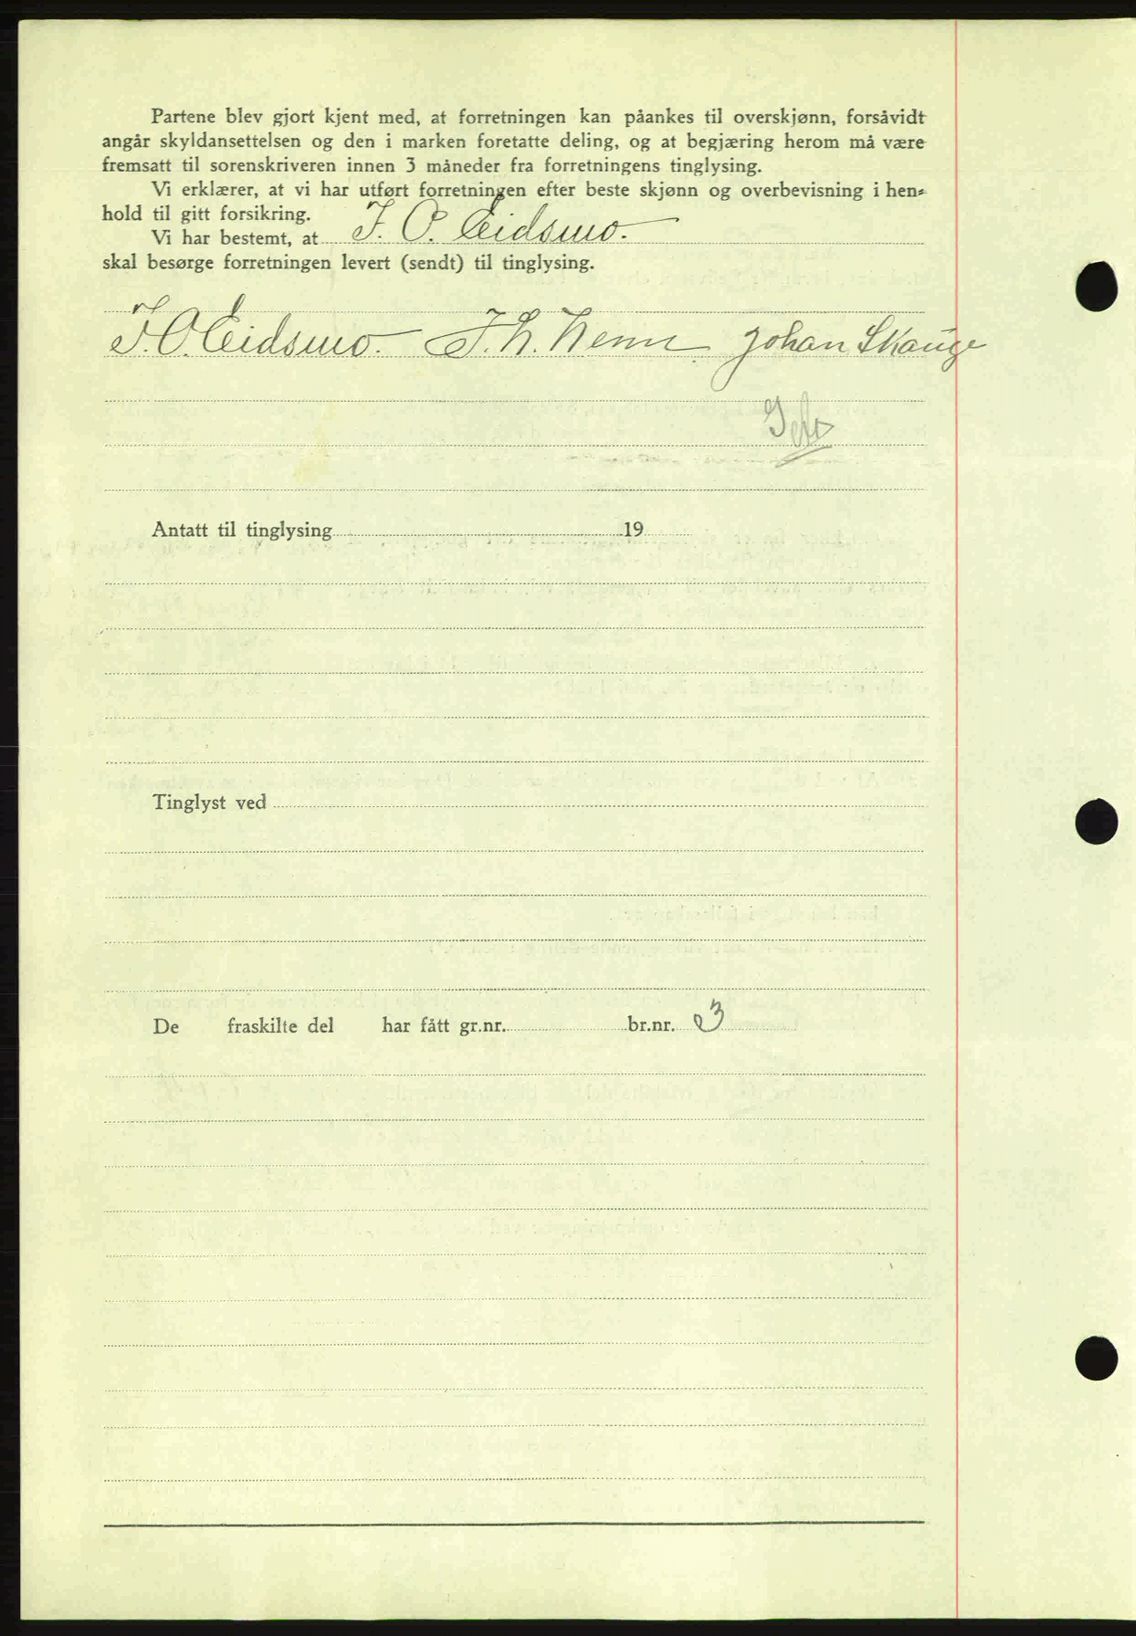 Partene blev gjort kjent med, at forretningen kan påankes til overskjønn, forsåvidt
angår skyldansettelsen og den i marken foretatte deling, og at begjæring herom må være
fremsatt til sorenskriveren innen 3 måneder fra forretningens tinglysing.
Vi erklærer, at vi har utført forretningen efter beste skjønn og overbevisning i hen-
hold til gitt forsikring.
Vi har bestemt, at J. O. Eidsmo.
skal besørge forretningen levert (sendt) til tinglysing.
J. O. Eidsmo. Johan Skauge
Antatt til tinglysing 19
Tinglyst ved
De fraskilte del har fått gr.nr. br.nr. 3